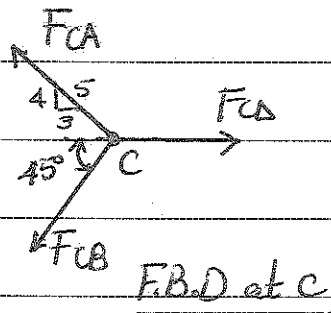 FCA
4 5
3
FCD
45°
C
FCB
F.B.D at C